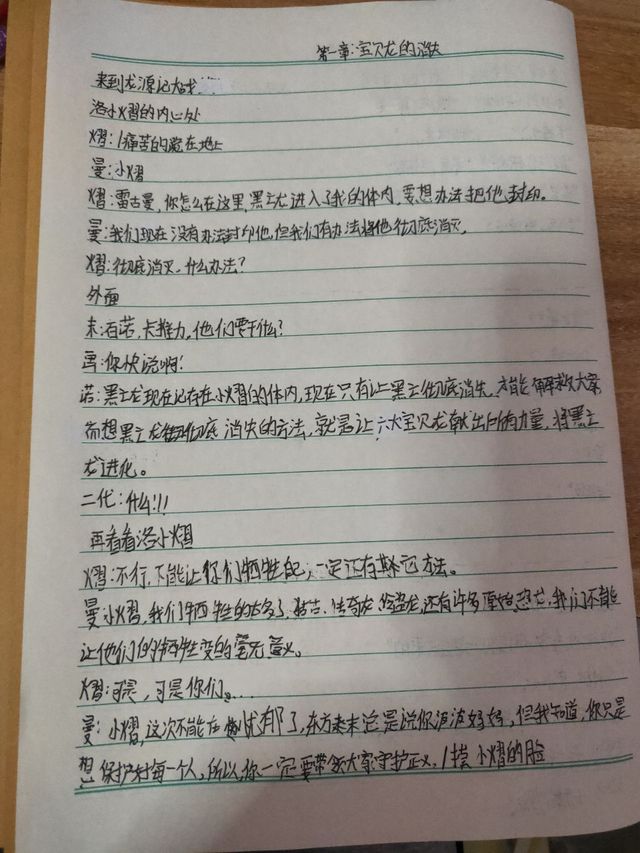 第一章:宝贝龙的消失
来到龙源记大战
洛小熠的内心处
熠:/痛苦的跪在地上
曼:小熠
熠:雷古曼,你怎么在这里,黑主龙进入了我的体内,要想办法把他封印。
曼:我们现在没有办法封印他,但我们有办法将他彻底消灭。
熠:彻底消灭,什么办法?
外面
末:百诺,卡推力,他们要干什么?
雪:你快说啊!
诺:黑主龙现在记存在小熠的体内,现在只有让黑主彻底消失,才能解救大家
而想黑主龙彻底消失的方法,就是让六大宝贝龙献出所有力量,将黑主
龙进化。
二代:什么!!!
再看看洛小熠
熠:不行,不能让你们牺牲自己,一定还有其它方法。
曼:小熠,我们牺牲的太多了,传奇龙,还有许多原始恐龙,我们不能
让他们的牺牲变的毫无意义。
熠:可是,可是你们……
曼:小熠,这次不能在忧郁了,东方末末总是说你婆婆妈妈,但我知道,你只是
想保护好每一个人,所以,你一定要带领大家守护正义,/摸小熠的脸